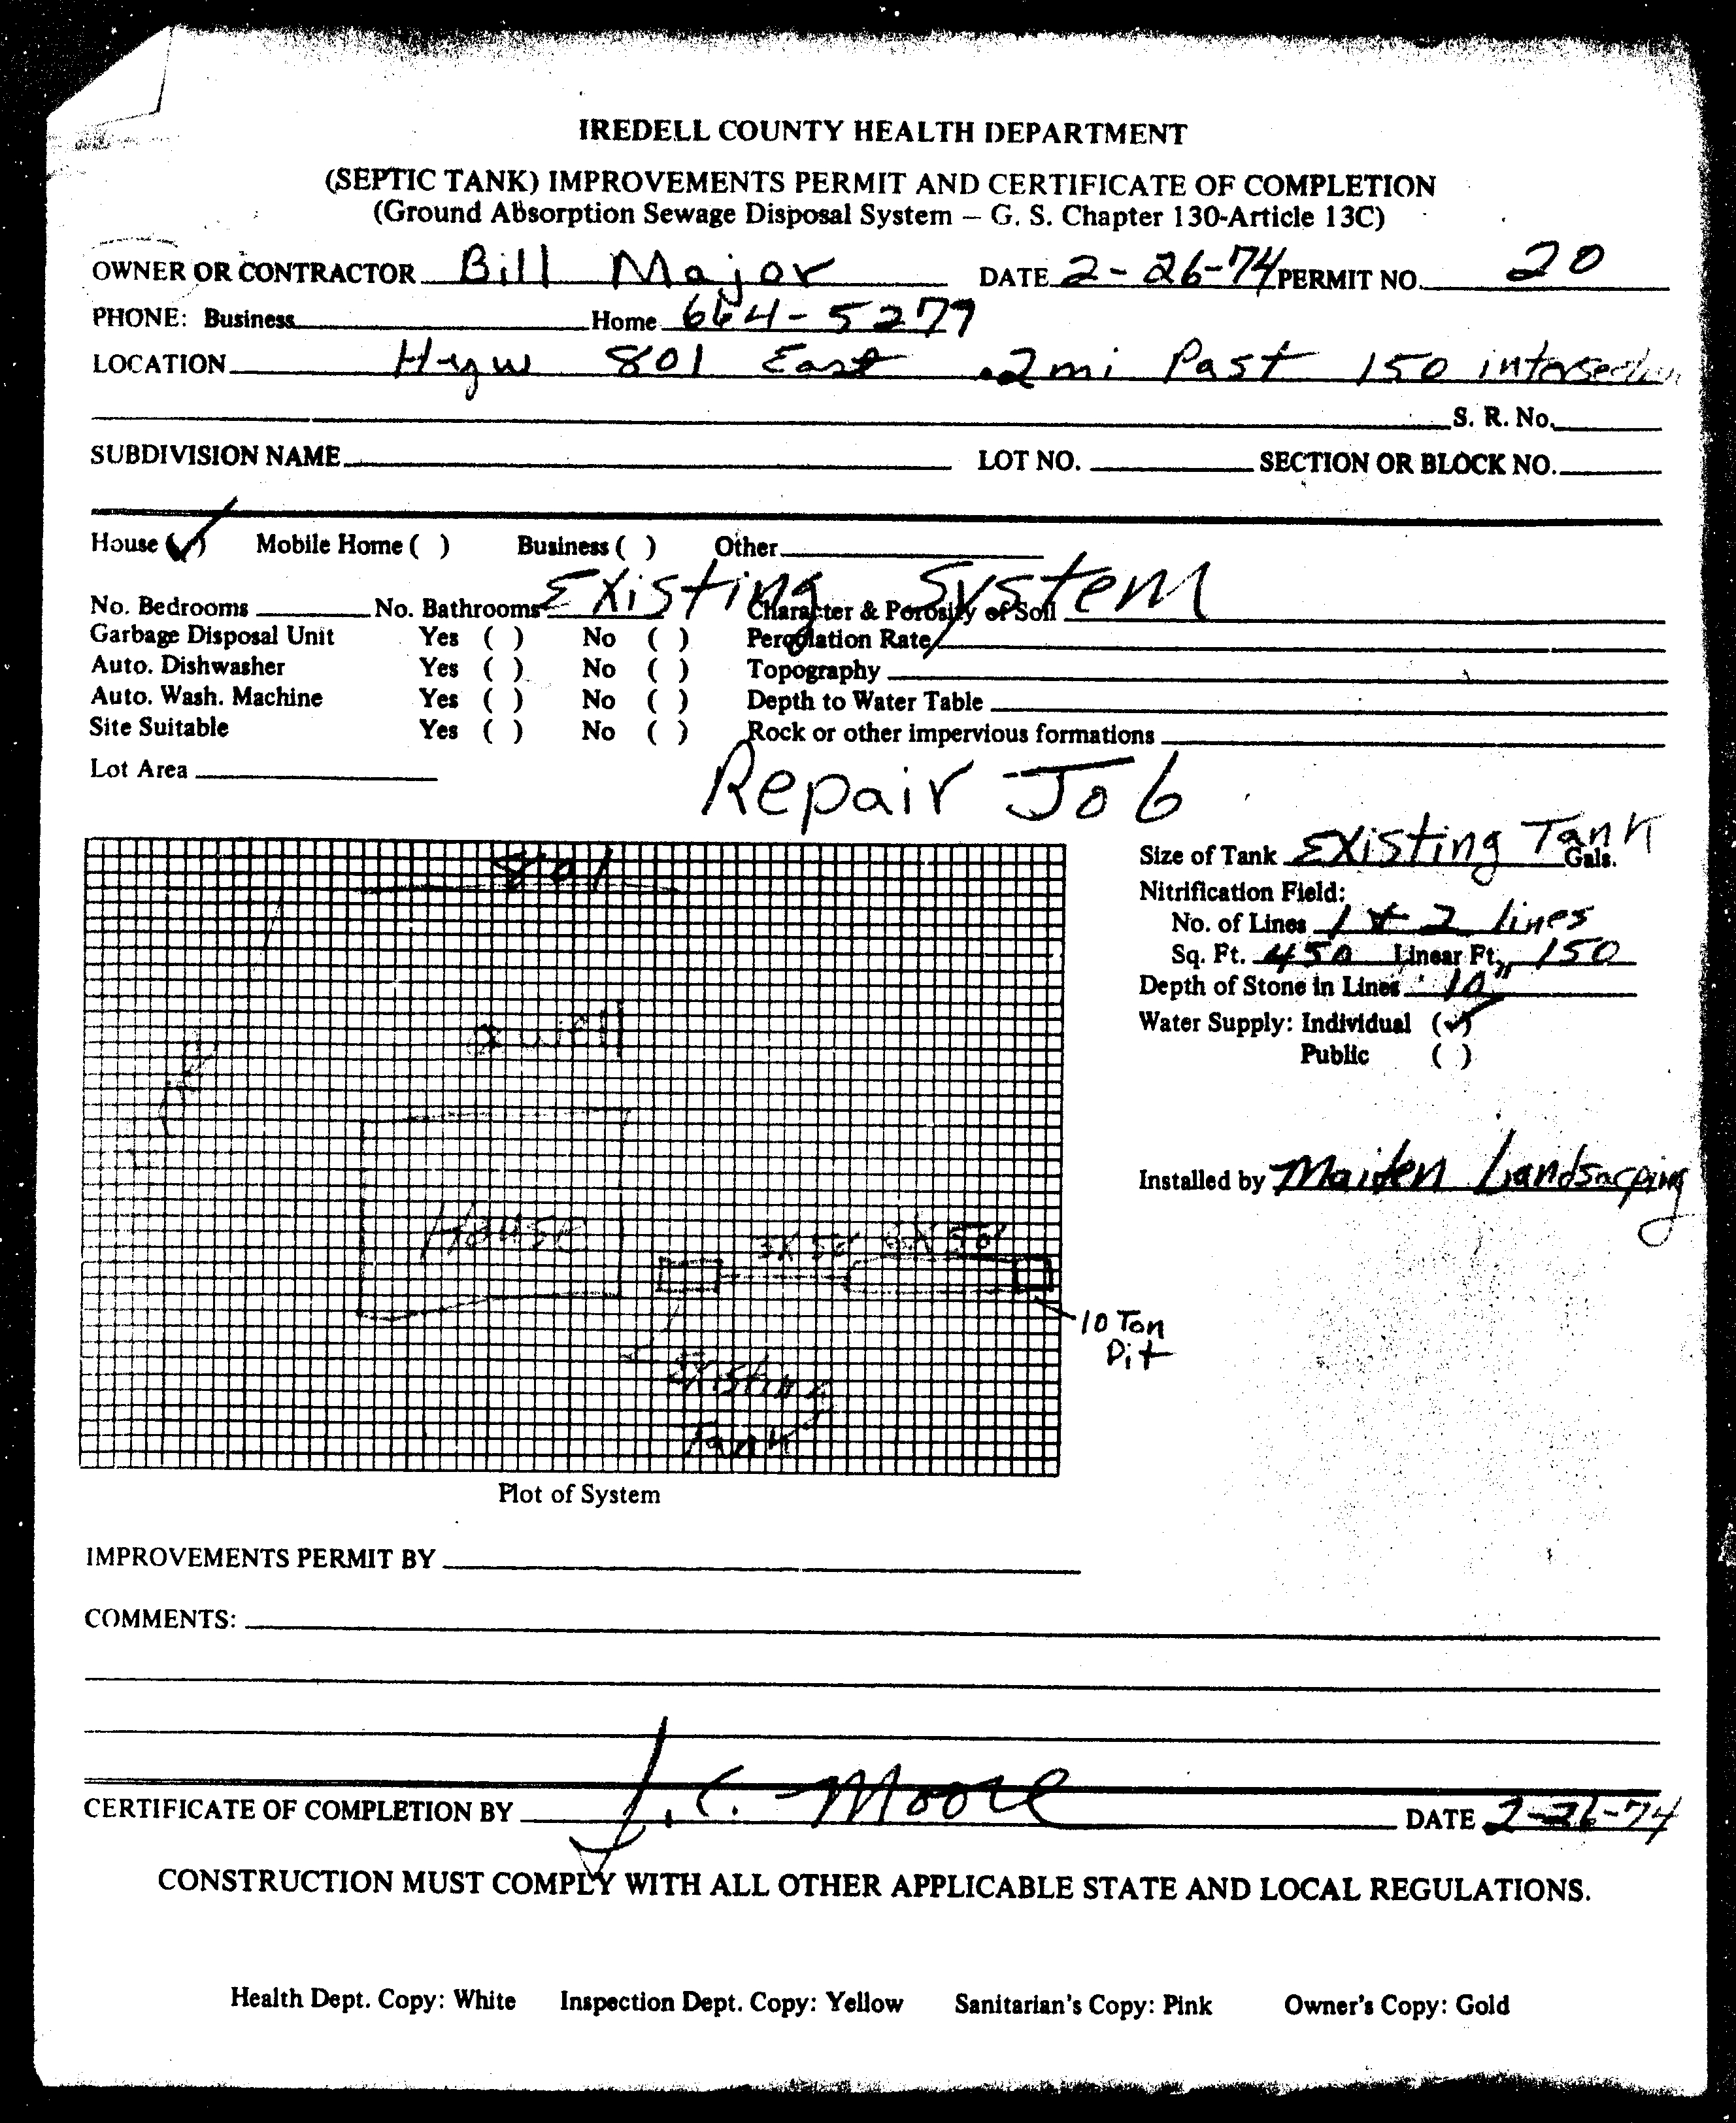 IREDELL COUNTY HEALTH DEPARTMENT
(SEPTIC TANK) IMPROVEMENTS PERMIT AND CERTIFICATE OF COMPLETION
(Ground Absorption Sewage Disposal System – G. S. Chapter 130-Article 13C)
OWNER OR CONTRACTOR Bill Major DATE 2-26-74 PERMIT NO. 20
PHONE: Business Home 664-5279
LOCATION Hyw 801 East .2mi Past 150 intersection
S. R. No.
SUBDIVISION NAME LOT NO. SECTION OR BLOCK NO.
House (✓) Mobile Home ( ) Business ( ) Other
Existing System
No. Bedrooms No. Bathrooms Character & Porosity of Soil
Garbage Disposal Unit Yes ( ) No ( ) Percolation Rate
Auto. Dishwasher Yes ( ) No ( ) Topography
Auto. Wash. Machine Yes ( ) No ( ) Depth to Water Table
Site Suitable Yes ( ) No ( ) Rock or other impervious formations
Lot Area
Repair Job
801
Size of Tank Existing Tank Gals.
Nitrification Field:
No. of Lines 1 + 2 lines
Sq. Ft. 450 Linear Ft. 150
Depth of Stone in Lines 10"
Water Supply: Individual (✓)
Public ( )
well
Installed by Maiden Landsacping
House
3X50' 6X50'
10 Ton
Pit
Existing
Tank
Plot of System
IMPROVEMENTS PERMIT BY
COMMENTS:
CERTIFICATE OF COMPLETION BY J. C. Moore DATE 2-26-74
CONSTRUCTION MUST COMPLY WITH ALL OTHER APPLICABLE STATE AND LOCAL REGULATIONS.
Health Dept. Copy: White Inspection Dept. Copy: Yellow Sanitarian's Copy: Pink Owner's Copy: Gold